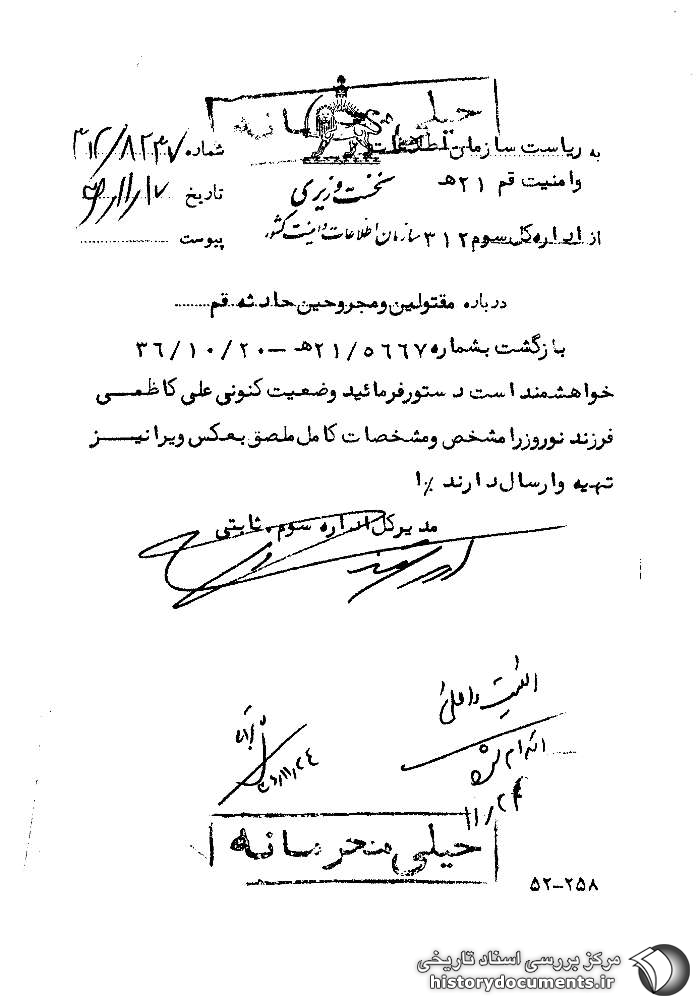 خیلی محرمانه
به ریاست سازمان اطلاعات
و امنیت قم ۲۱ هـ
نخست وزیری
سازمان اطلاعات و امنیت کشور
از اداره کل سوم ۳۱۲
شماره ۳۱۲/۸۲۴۷
تاریخ
پیوست
درباره مقتولین و مجروحین حادثه قم
بازگشت بشماره ۲۱/۵۶۶۷هـ - ۳۶/۱۰/۲۰
خواهشمند است دستور فرمائید وضعیت کنونی علی کاظمی
فرزند نوروز را مشخص و مشخصات کامل ملصق بعکس ویرا نیز
تهیه و ارسال دارند ٪۱
مدیر کل اداره سوم . ثابتی
امنیت داخلی
اقدام
۱۱/۲۴
۳۶/۱۱/۲۴
خیلی محرمانه
۵۲-۲۵۸
مرکز بررسی اسناد تاریخی
historydocuments.ir